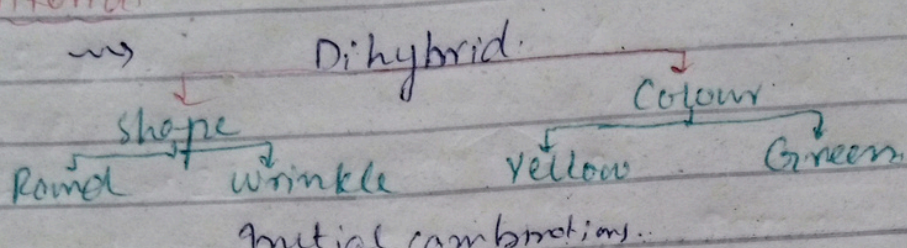 Dihybrid.
Shape Colour
Round Wrinkle Yellow Green
Initial combinations..